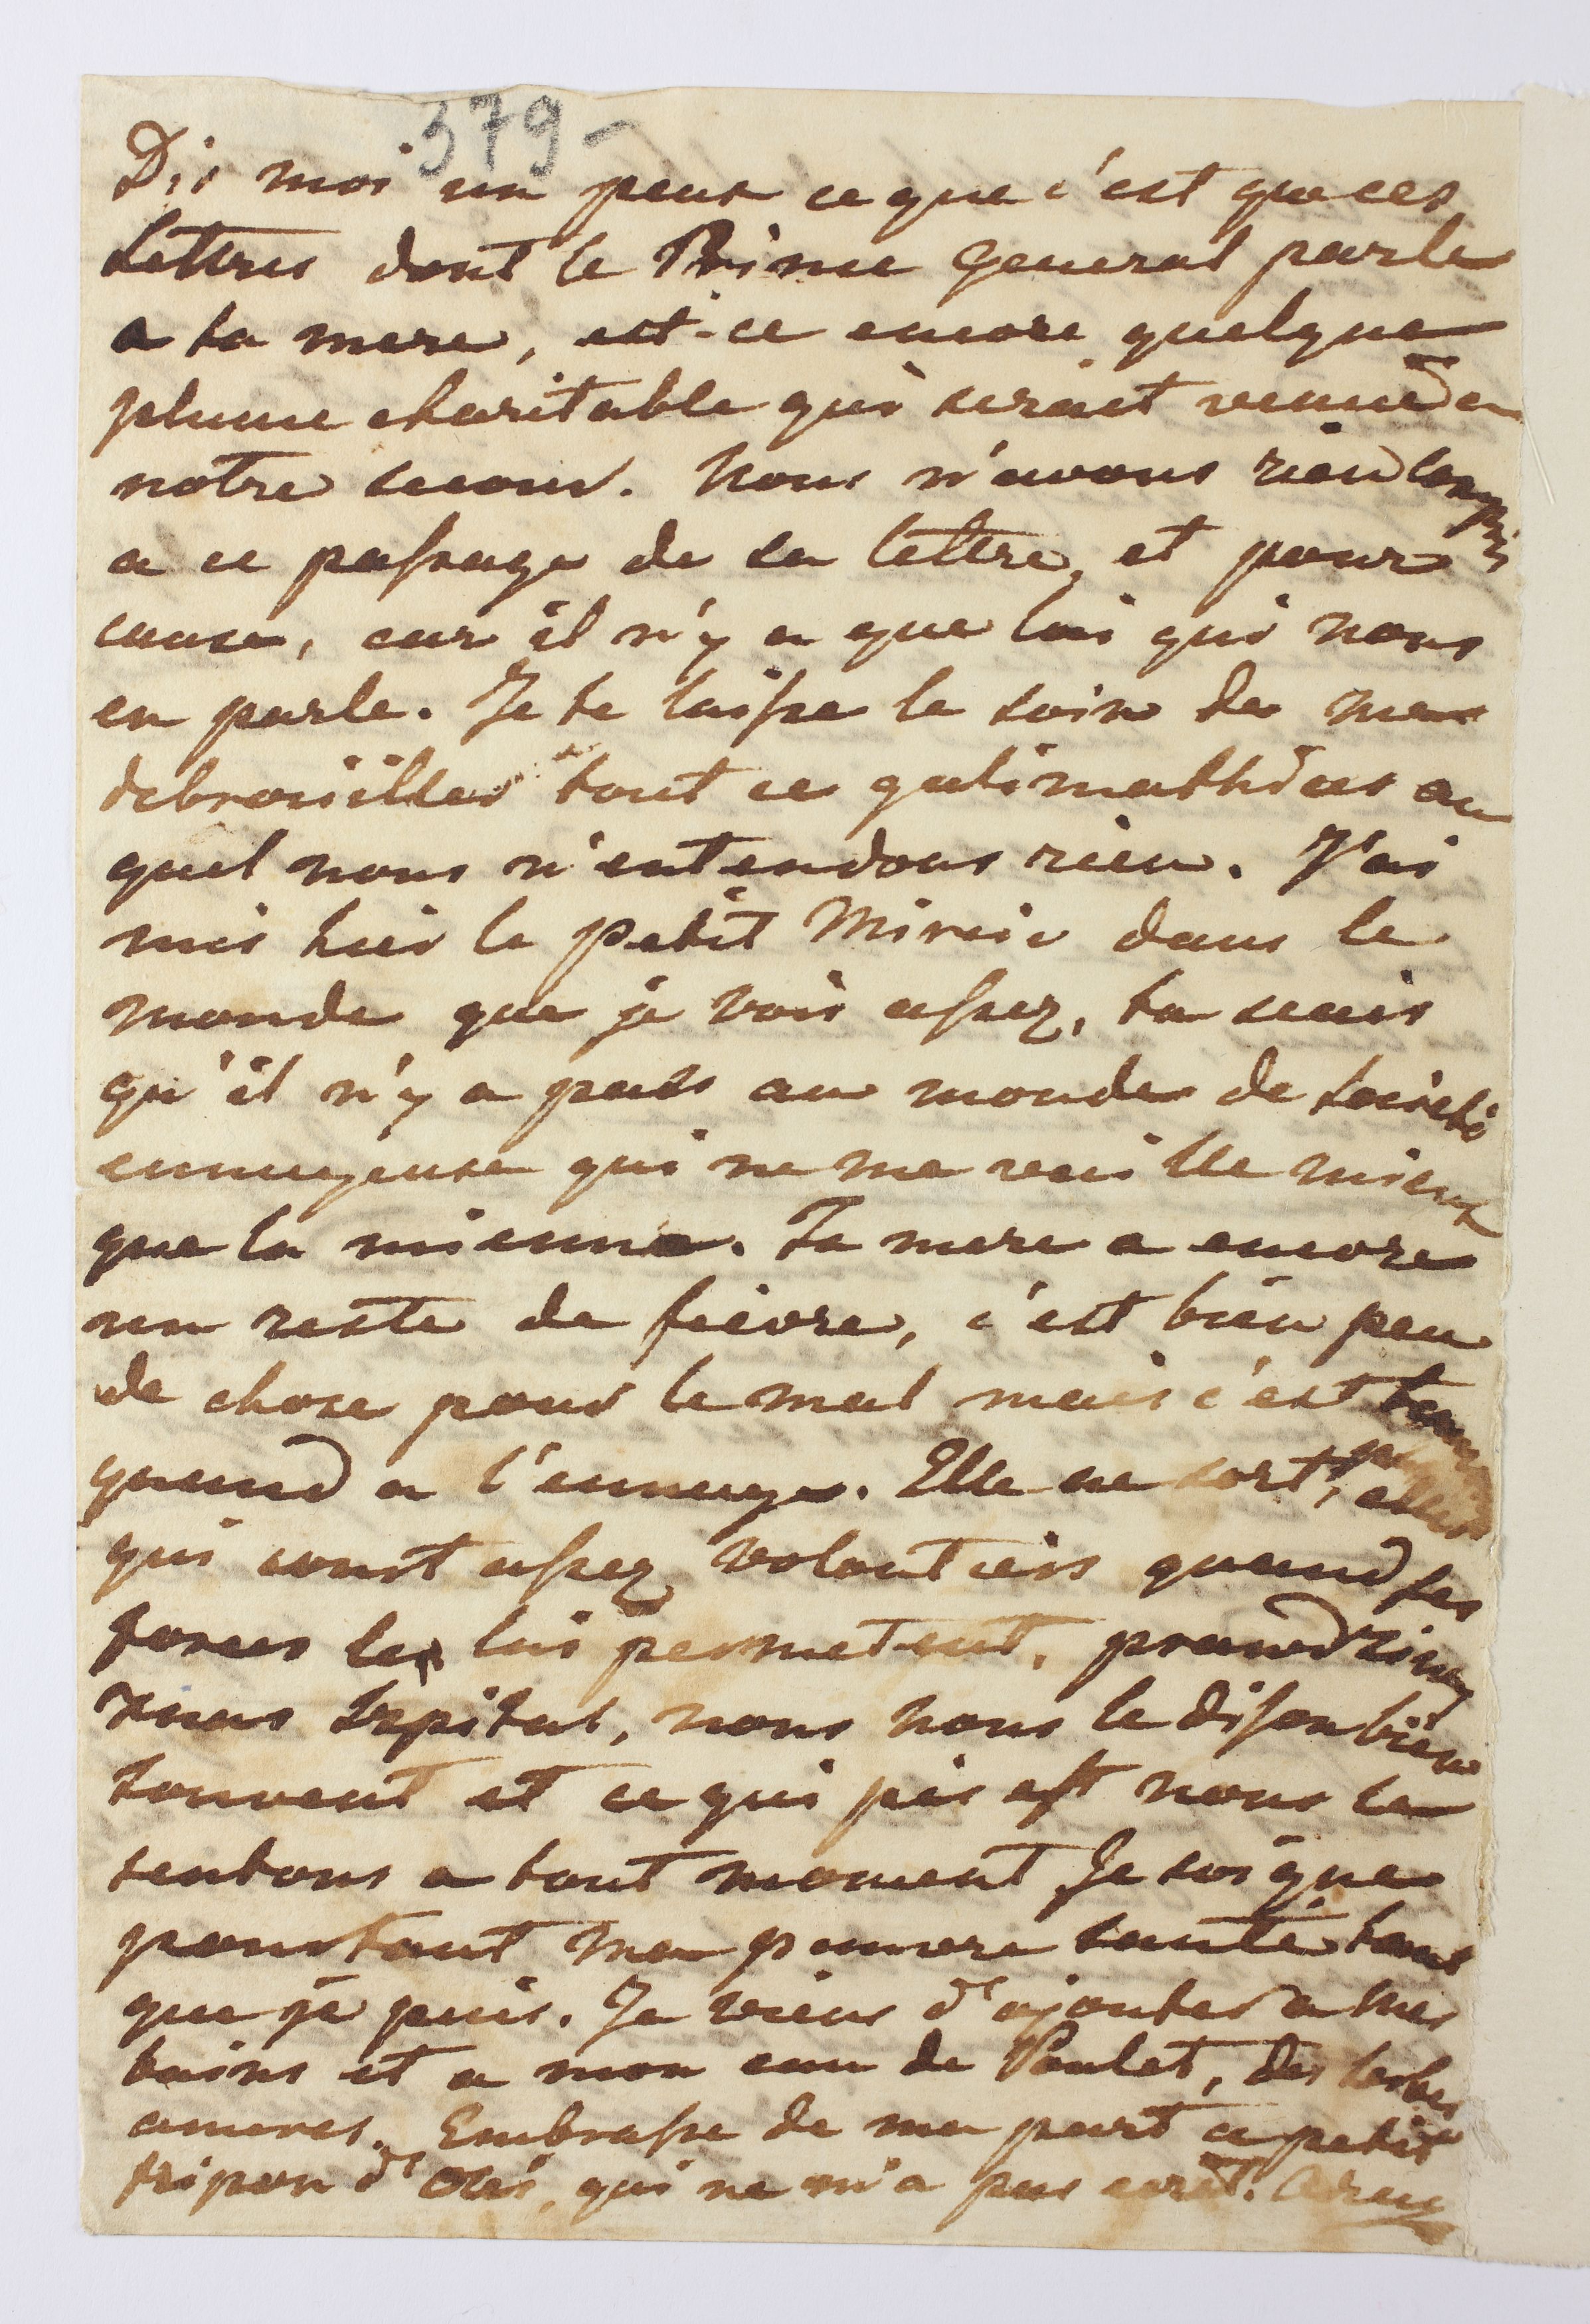 379-
Dis moi un peux ce que c'est que ces
lettres dont le Prince General parle
a ta mere, est-ce encore quelque
plume charitable qui serait venue en
notre secour. Nous n'avons rien compris
a ce passage de sa lettre, et pour
cause, car il n'y a que lui qui nous
en parle. Je te laisse le soin de me
debrouiller tout ce galimathias au
quel nous n'entendons rien. J'ai
mis hier le petit Miroir dans le
monde que je vois assez, tu scais
qu'il n'y a pas au monde de société
ennuyeuse qui ne me vaille mieux
que la mienne. Ta mere a encore
un reste de fievre, c'est bien peu
de chose pour le mal mais c'est
quand a l'ennuye. Elle ne sort pas, elle
qui court assez volontiers quand ses
forces le lui permetent.
nous nous le dison bien
souvent et ce qui pis est nous le
sentons a tout moment Je soigne
pourtant ma pauvre santé tant
que je puis. Je viens d'ajouter a mes
bains et a mon eau de Poulet, des herbes
ameres. Embrasse de ma part ce petit
fripon d' qui ne m'a pas ecrit. Adieu